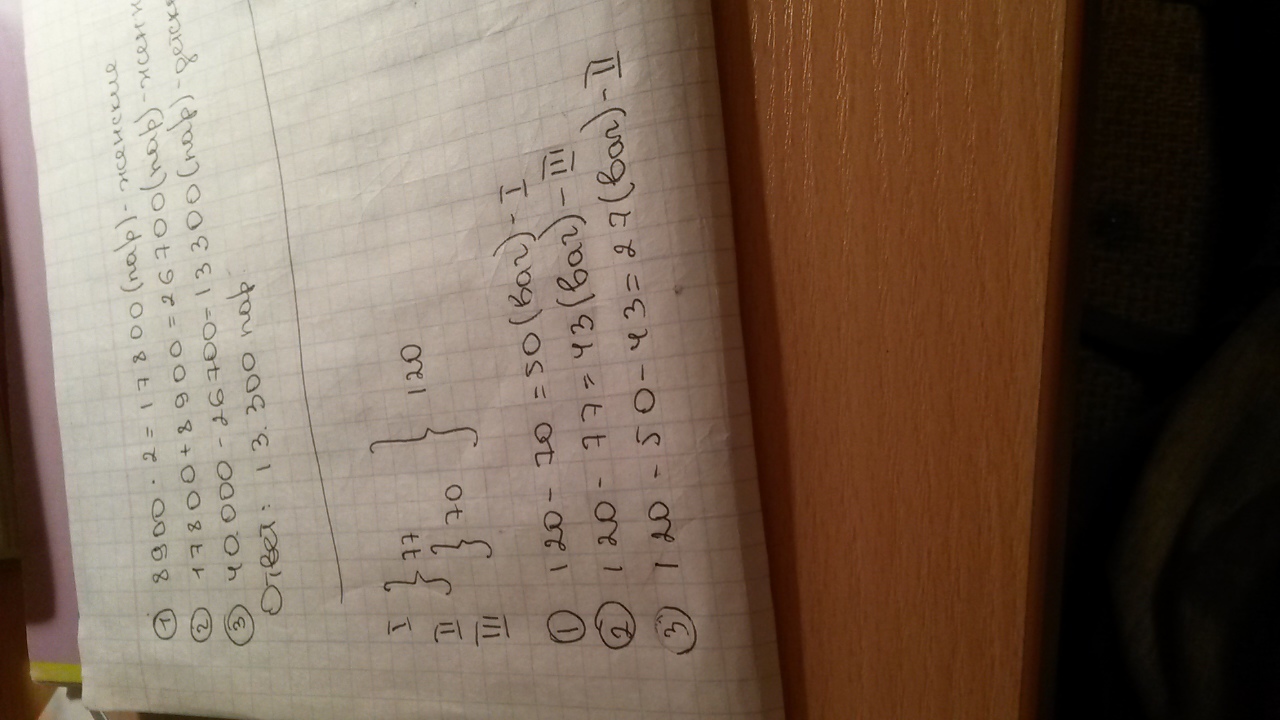 ① 8900 · 2 = 17800 (пар) - женские
② 17800 + 8900 = 26700 (пар) - женс
③ 40.000 - 26700 = 13300 (пар) - детск
Ответ: 13.300 пар.
I } 77 } 120
II } 70
III
① 120 - 70 = 50 (ваг) - I
② 120 - 77 = 43 (ваг) - III
③ 120 - 50 - 43 = 27 (ваг) - II